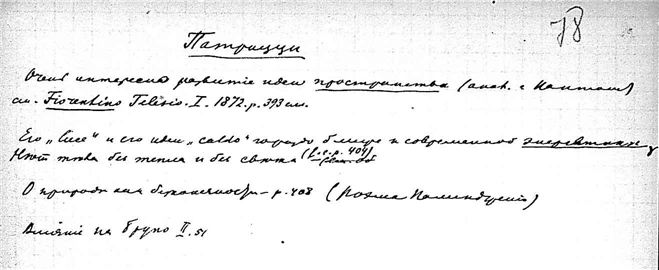 78
Патрицци
Очень интересно развитие идеи пространства (анал. с Кантом)
см. Fiorentino Telesio. I. 1872. p. 393 сл.
Его „luce“ и его идеи „caldo“ гораздо ближе к современной энергетике
Нет тела без тепла и без света (l. c. p. 404)
О природе как бесконечности – p. 408 (
Влияние на Бруно II. 51